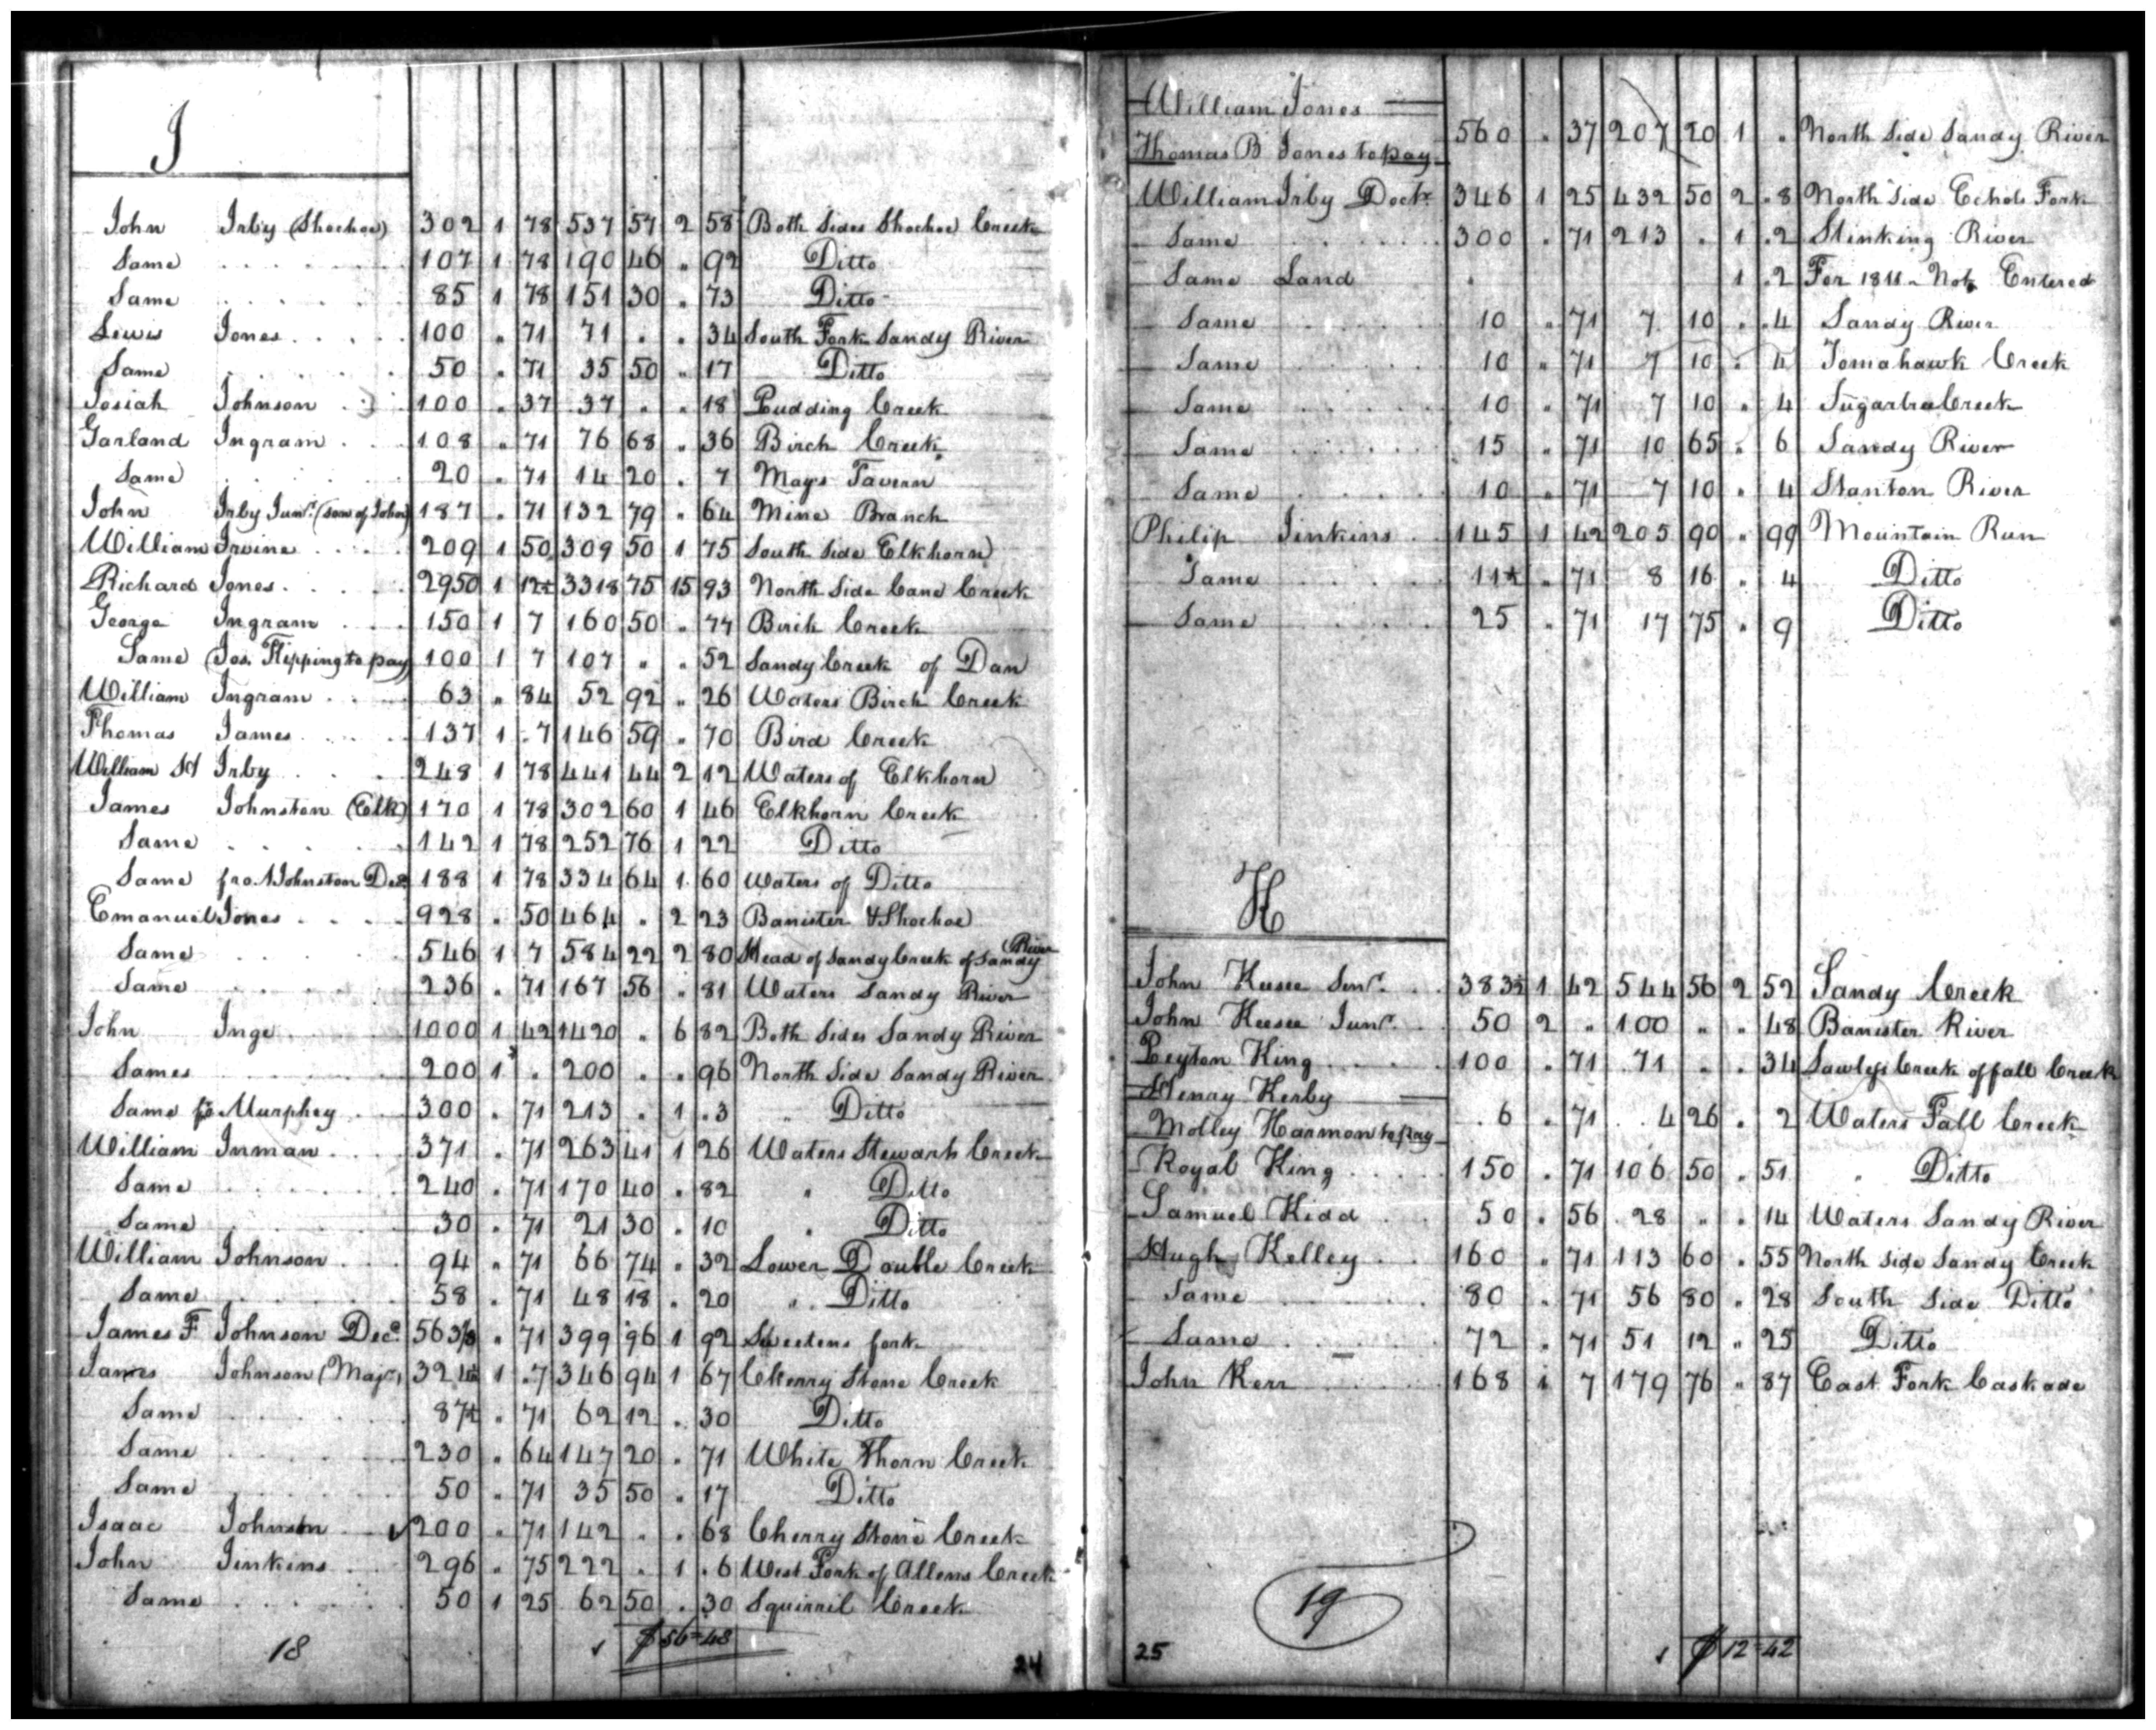 I
John Irby (Shockoe) 302 1 78 537 57 2 58 Both Sides Shockoe Creek
Same 107 1 78 190 46 " 92 Ditto
Same 85 1 78 151 30 . 73 Ditto
Lewis Jones 100 " 71 71 . . 34 South Fork Sandy River
Same 50 " 71 35 50 " 17 Ditto
Josiah Johnson 100 . 37 37 . . 18 Pudding Creek
Garland Ingram 108 " 71 76 68 . 36 Birch Creek
Same 20 . 71 14 20 . 7 Mays Tavern
John Irby Junr. (son of John) 187 . 71 132 79 " 64 Mine Branch
William Irvine 209 1 50 309 50 1 75 South Side Elkhorn
Richard Jones 2950 1 12½ 3318 75 15 93 North Side Cane Creek
George Ingram 150 1 7 160 50 . 77 Birch Creek
Same (Jos. Flipping to pay) 100 1 7 107 " . 52 Sandy Creek of Dan
William Ingram 63 " 84 52 92 " 26 Waters Birch Creek
Thomas James 137 1 .7 146 59 " 70 Bird Creek
William H Irby 248 1 78 441 44 2 12 Waters of Elkhorn
James Johnston (Elk) 170 1 78 302 60 1 46 Elkhorn Creek
Same 142 1 78 252 76 1 22 Ditto
Same fro. Johnston Decd 188 1 78 334 64 1 60 Waters of Ditto
Emanuel Jones 928 . 50 464 . 2 23 Banister & Shockoe
Same 546 1 7 584 22 2 80 Head of Sandy Creek of Sandy River
Same 236 . 71 167 56 . 81 Waters Sandy River
John Inge 1000 1 42 1420 . 6 82 Both Sides Sandy River
Same 200 1 . 200 . . 96 North Side Sandy River
Same fo Murphey 300 . 71 213 . 1 .3 " Ditto
William Inman 371 . 71 263 41 1 26 Waters Stewarts Creek
Same 240 . 71 170 40 . 82 " Ditto
Same 30 . 71 21 30 . 10 " Ditto
William Johnson 94 " 71 66 74 . 32 Lower Double Creek
Same 58 . 71 48 18 . 20 " Ditto
James F Johnson Decd. 563⅓ . 71 399 96 1 92 Sweetens fork
James Johnson (Majr) 324¼ 1 .7 346 94 1 67 Cherry Stone Creek
Same 87½ . 71 62 12 . 30 Ditto
Same 230 . 64 147 20 . 71 White Thorn Creek
Same 50 . 71 35 50 . 17 Ditto
Isaac Johnston 200 . 71 142 . . 68 Cherry Stone Creek
John Jinkins 296 . 75 222 . 1 .6 West Fork of Allens Creek
Same 50 1 25 62 50 . 30 Squirril Creek
18 $56=48
24
William Jones
Thomas B Jones to pay 560 . 37 207 20 1 . North Side Sandy River
William Irby Doctr. 346 1 25 432 50 2 .8 North Side Echols Fork
Same 300 . 71 213 . 1 .2 Stinking River
Same Land . 1 .2 For 1811 Not Entered
Same 10 . 71 7 10 . .4 Sandy River
Same 10 " 71 7 10 . 4 Tomahawk Creek
Same 10 . 71 7 10 . 4 Sugartree Creek
Same 15 . 71 10 65 . 6 Sandy River
Same 10 . 71 7 10 . 4 Stanton River
Philip Jinkins 145 1 42 205 90 " 99 Mountain Run
Same 11½ . 71 8 16 . 4 Ditto
Same 25 . 71 17 75 . 9 Ditto
K
John Keesee Senr. 383½ 1 42 544 56 2 52 Sandy Creek
John Keesee Junr. 50 2 " 100 " . 48 Banister River
Peyton King 100 . 71 71 . . 34 Sawleys Creek of fall Creek
Henry Kerby
Molley Harmon to pay 6 . 71 4 26 . 2 Waters Fall Creek
Royal King 150 . 71 106 50 . 51 " Ditto
Samuel Kidd 50 . 56 28 " . 14 Waters Sandy River
Hugh Kelley 160 . 71 113 60 . 55 North side Sandy Creek
Same 80 . 71 56 80 . 28 South Side Ditto
Same 72 . 71 51 12 " 25 Ditto
John Kerr 168 1 7 179 76 . 87 East Fork Caskade
19
25 $12=42